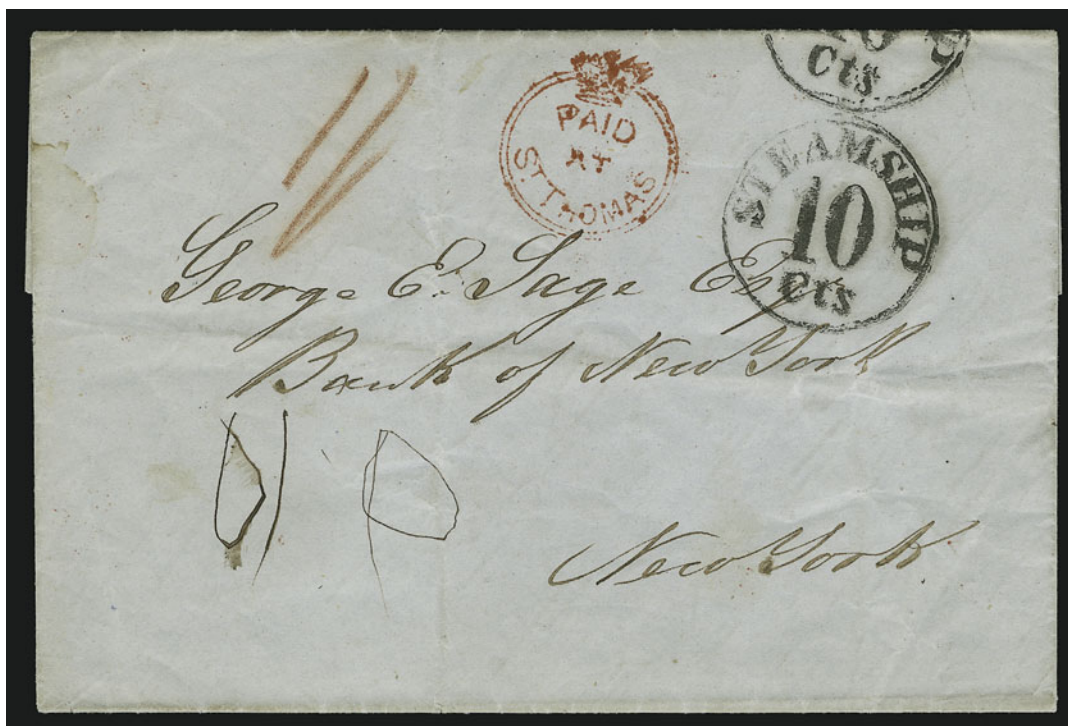 Cts
PAID
AT
ST THOMAS
STEAMSHIP
10
cts
George E. Sage Esq
Bank of New York
New York